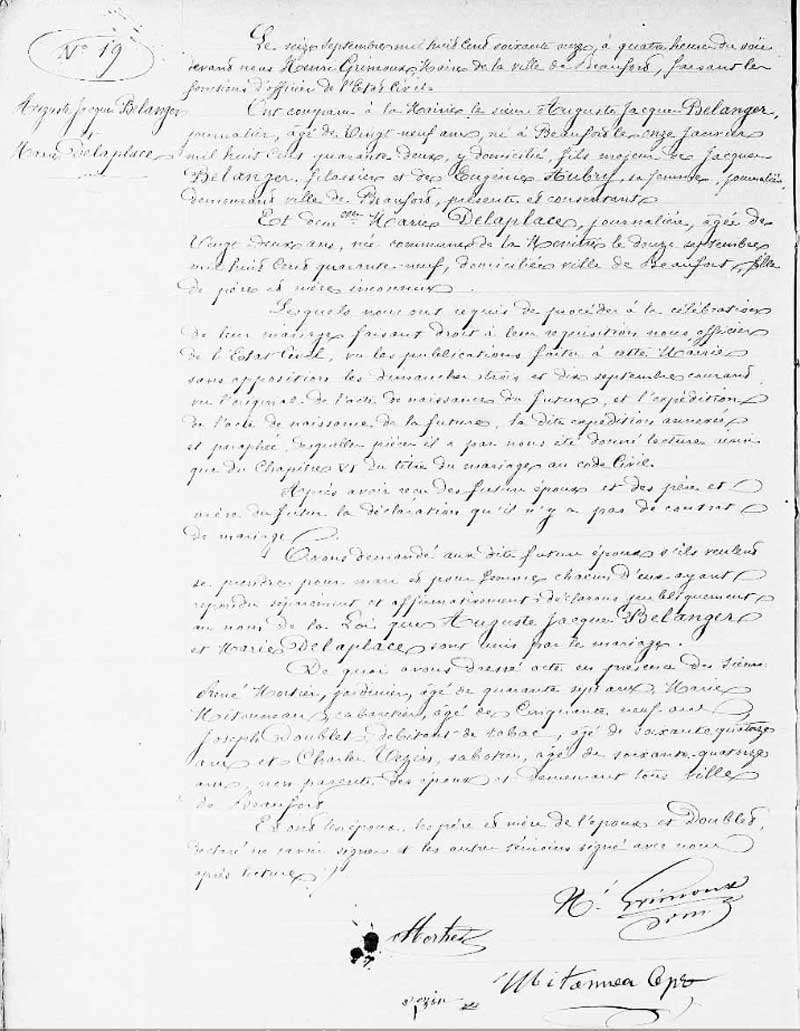 N° 19
Auguste Jacques Belanger
et
Marie Delaplace
Le seize septembre mil huit cent soixante onze, à quatre heures du soir
devant nous Henri Grimoux, Maire de la ville de Beaufort, faisant les
fonctions d'officier de l'Etat Civil.
Ont comparu à la Mairie le sieur Auguste Jacques Belanger,
journalier, âgé de Vingt neuf ans, né à Beaufort le onze janvier
mil huit cent quarante deux, y domicilié, fils majeur de Jacques
Belanger, filassier et de Eugénie Aubry, sa femme, journalière
demeurant ville de Beaufort, présents et consentants
Et dem.elle Marie Delaplace, journalière, âgée de
Vingt deux ans, née commune de la Menitré le douze septembre
mil huit cent quarante-neuf, domiciliée ville de Beaufort, fille
de père et mère inconnus.
Lesquels nous ont requis de procéder à la célébration
de leur mariage, faisant droit à leur requisition nous officier
de l'Etat Civil, vu les publications faites à cette Mairie
sans opposition les dimanches trois et dix septembre courant
vu l'original de l'acte de naissance du futur, et l'expédition
de l'acte de naissance de la future, la dite expédition annexée
et paraphée, desquelles pièces il a par nous été donné lecture ainsi
que du Chapitre VI du titre du mariage au code Civil.
Après avoir reçu des futurs époux et des père et
mère du futur la déclaration qu'il n'y a pas de contrat
de mariage.
Avons demandé aux dits futurs époux s'ils veulent
se prendre pour mari et pour femme chacun d'eux ayant
répondu séparément et affirmativement, déclarons publiquement
au nom de la Loi que Auguste Jacques Belanger
et Marie Delaplace sont unis par le mariage.
De quoi avons dressé acte en présence des sieurs
René Mortier, jardinier, âgé de quarante sept ans, Marie
Mitonneau, cabaretier, âgé de Cinquante neuf ans
Joseph Doublet, débitant de tabac, âgé de soixante quatorze
ans et Charles Vezin, sabotier, âgé de soixante quatorze
ans, non parents des époux et demeurant tous ville
de Beaufort
Et ont les époux, les père et mère de l'époux et Doublet,
déclaré ne savoir signer et les autres témoins signé avec nous
après lecture
H.i Grimoux
Mortier
Mitonneau
Vezin